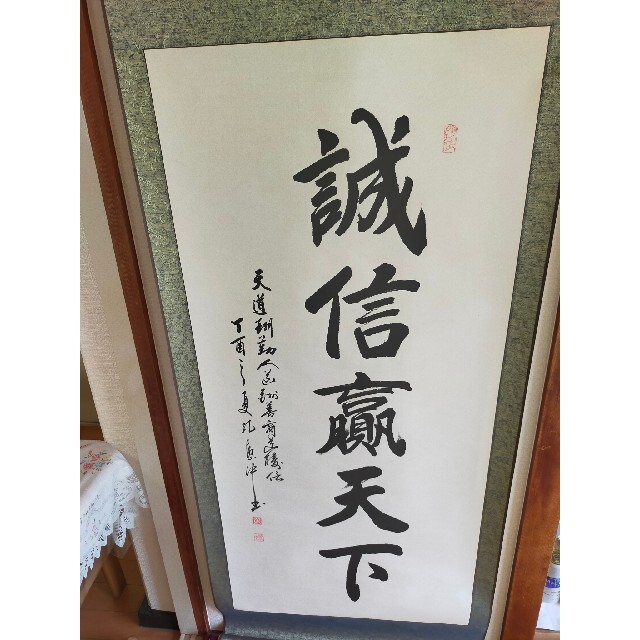 誠信贏天下
天道酬勤人道酬善商道酬信
丁酉之夏孔